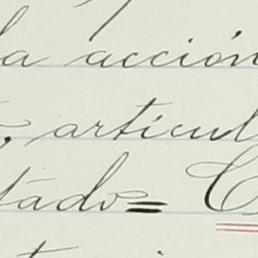 la acción
articul
tado= C